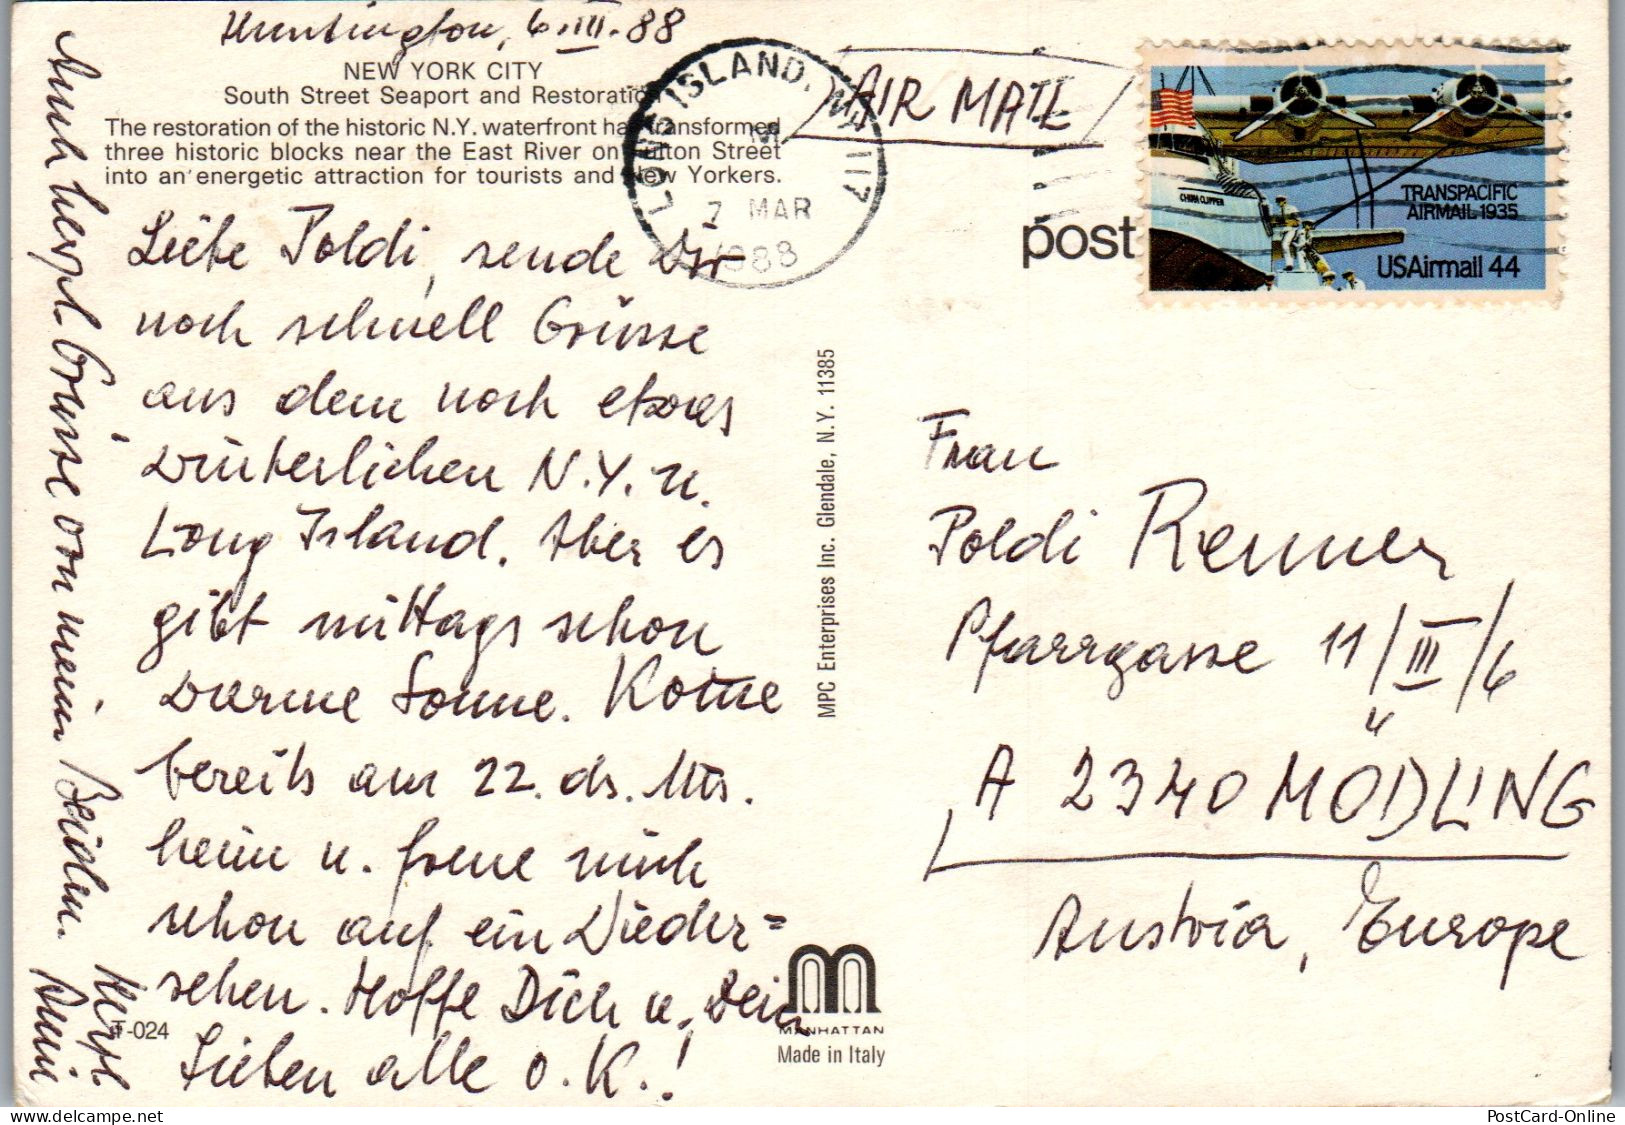 Huntington, 6.III.88
NEW YORK CITY
South Street Seaport and Restoration
The restoration of the historic N.Y. waterfront has transformed
three historic blocks near the East River on Fulton Street
into an energetic attraction for tourists and New Yorkers.
Liebe Poldi, sende Dir
noch schnell Grüsse
aus dem noch etwas
winterlichen N.Y. u.
Long Island. Aber es
gibt mittags schon
warme Sonne. Komme
bereits am 22. ds. Mts.
heim u. freue mich
schon auf ein Wieder=
sehen. Hoffe Dich u. Dein
Lieben alle o.K.!
Auch herzl. Grüsse von mein. Beiden.
Herzl.
T-024
MPC Enterprises Inc. Glendale, N.Y. 11385
MANHATTAN
Made in Italy
LONG ISLAND, NY 117
7 MAR
1988
AIR MAIL
post
CHINA CLIPPER
TRANSPACIFIC
AIRMAIL 1935
USAirmail 44
Frau
Poldi Renner
Pfarrgasse 11/III/6
A 2340 MÖDLING
Austria, Europe
PostCard-Online